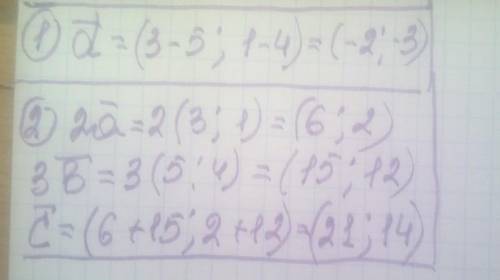 ① d⃗ = (3-5; 1-4) = (-2; -3)
② 2a⃗ = 2(3; 1) = (6; 2)
3b⃗ = 3(5; 4) = (15; 12)
c⃗ = (6+15; 2+12) = (21; 14)